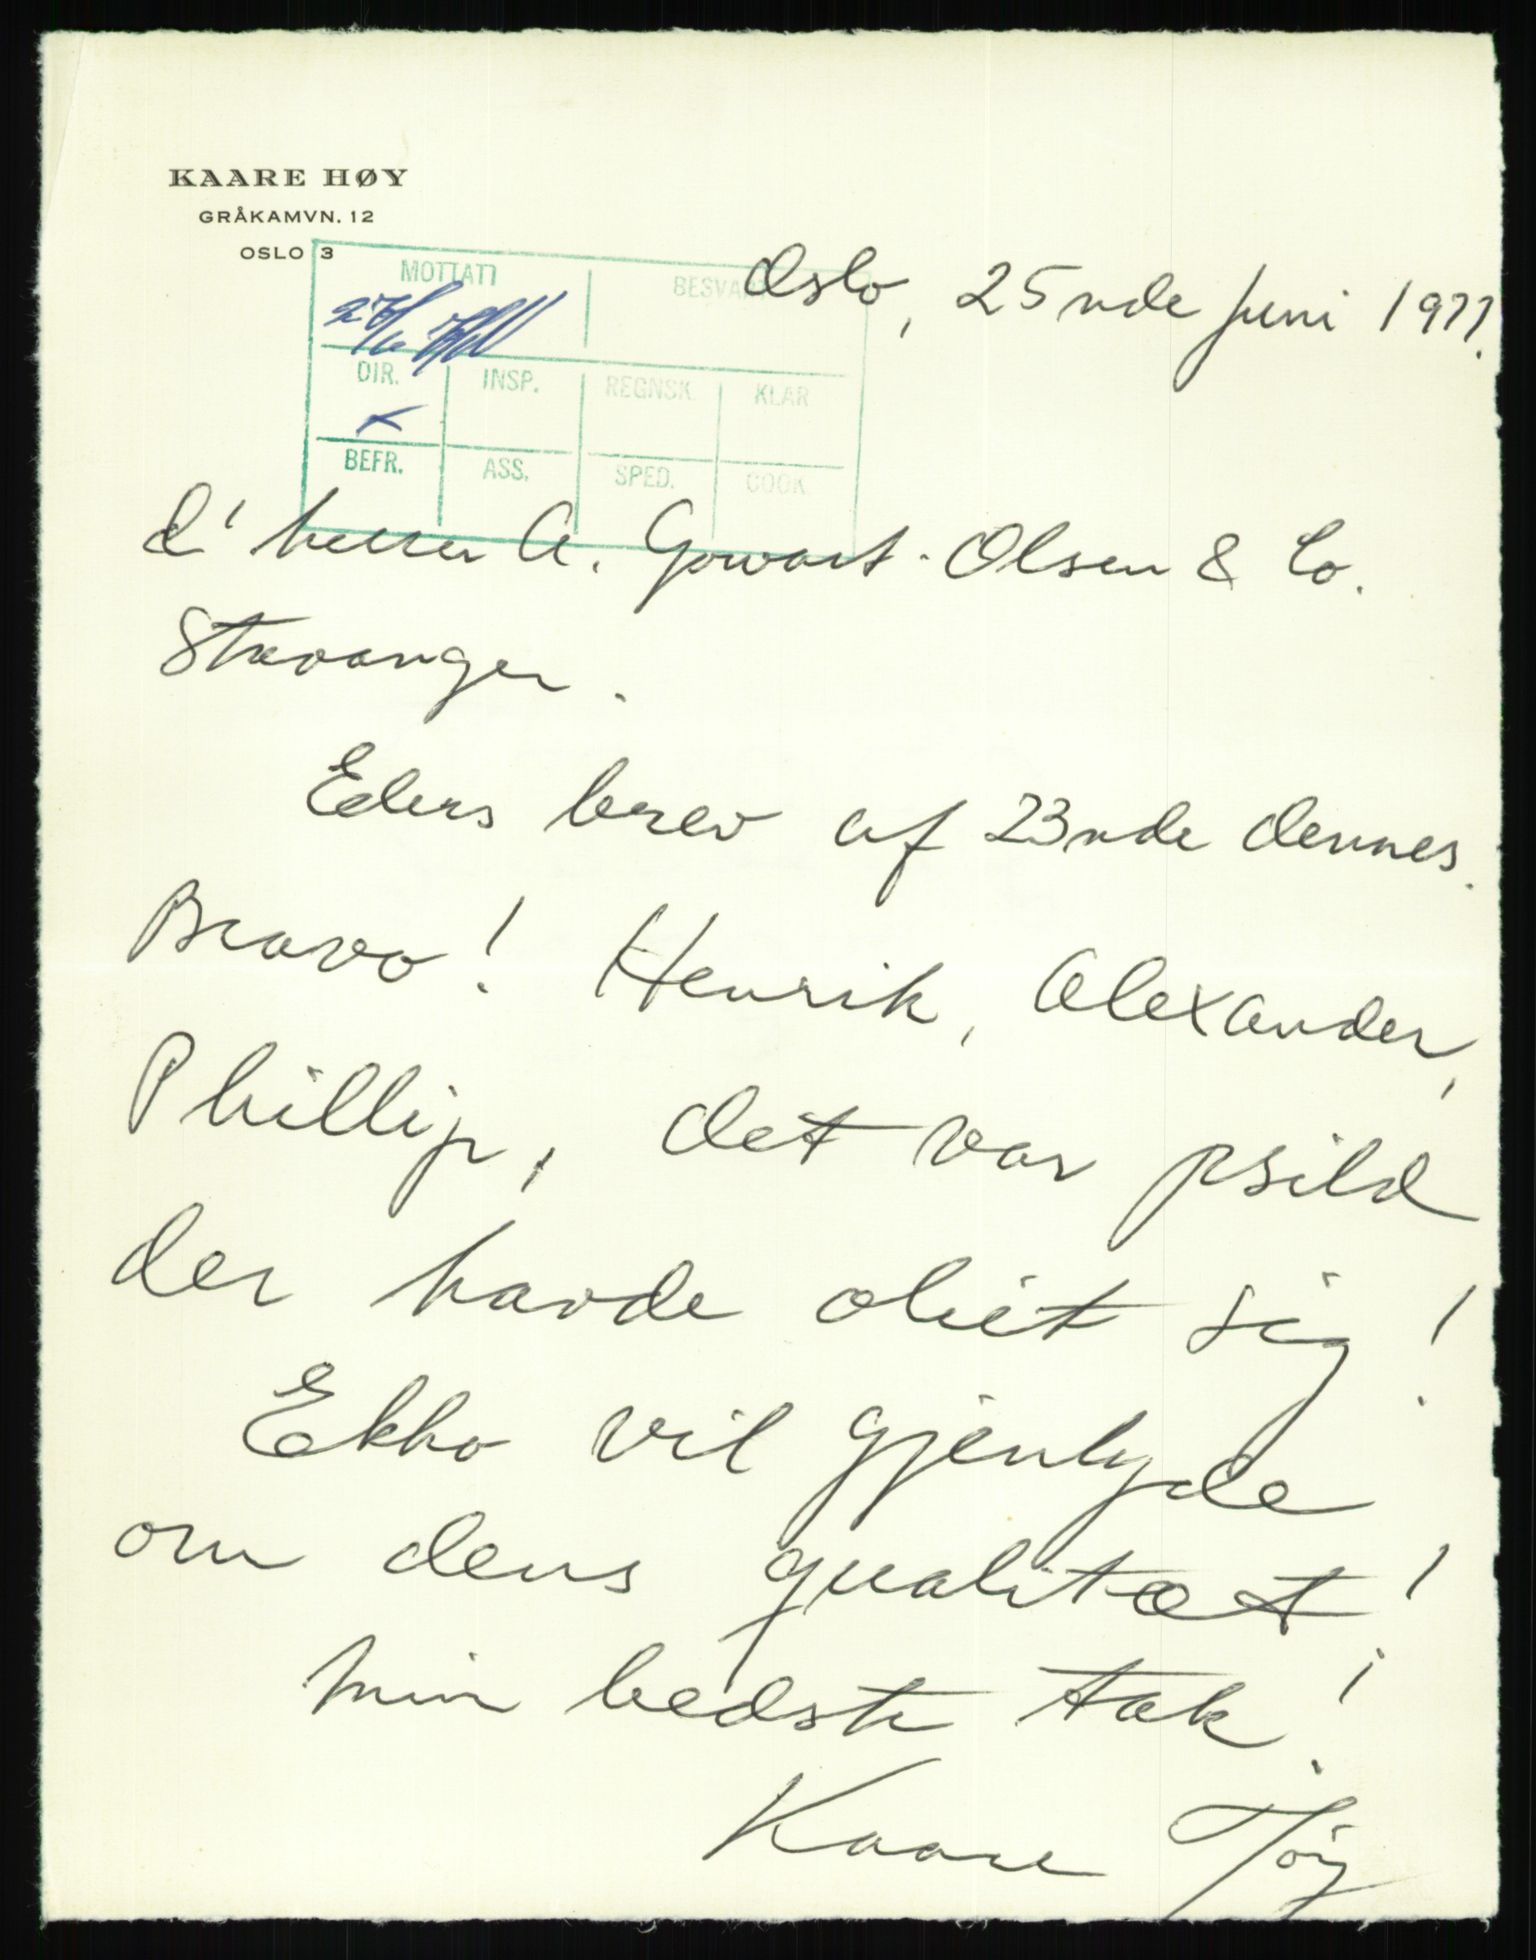 KAARE HØY
GRÅKAMVN. 12
OSLO 3
MOTTATT
BESVART
DIR.
INSP.
REGNSK.
KLAR
BEFR.
ASS.
SPED.
COOK
Oslo, 25nde juni 1977.
d'herrer A. Gowart-Olsen & Co.
Stavanger.
Eders brev af 23nde dennes.
Bravo! Henrik, Alexander,
Phillip, det var psild
der havde oliet sig!
Ekko vil gjenlyde
om dens qualitæt!
Min bedste tak!
Kaare Høy